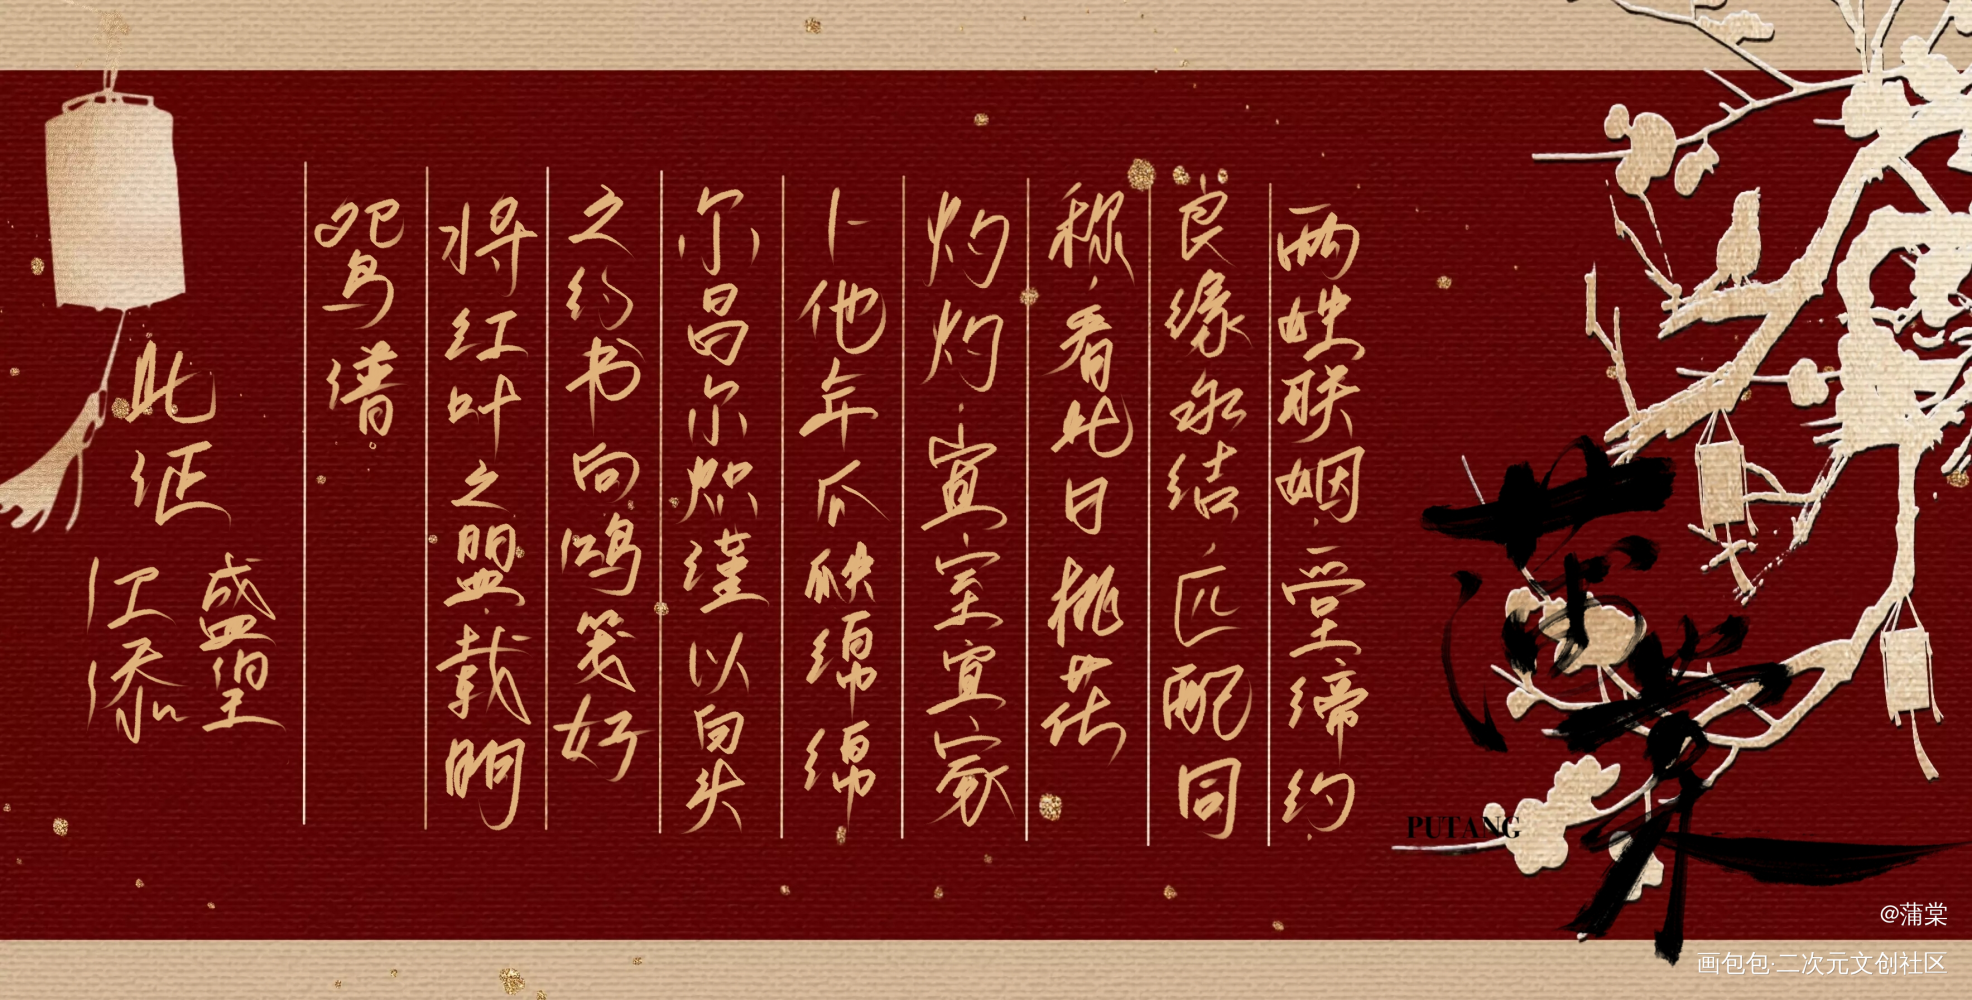 蒲棠
PUTANG
两姓联姻,一堂缔约
良缘永结,匹配同
称,看此日桃花
灼灼,宜室宜家
卜他年瓜瓞绵绵
尔昌尔炽谨以白头
之约书向鸿笺好
将红叶之盟载明
鸳谱
此证
盛望
江添
@蒲棠
画包包·二次元文创社区